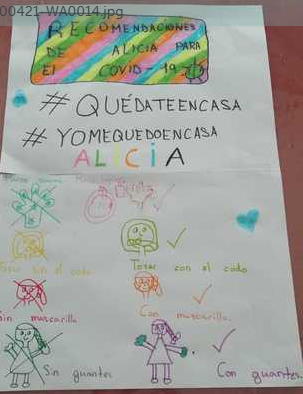 00421-WA0014.jpg
RECOMENDACIONES
DE ALICIA PARA
El COVID-19
# QUÉDATEENCASA
# YOMEQUEDOENCASA
ALICIA
Toser sin el codo
Toser con el codo
Sin mascarilla
Con mascarilla.
Sin guantes
Con guantes.